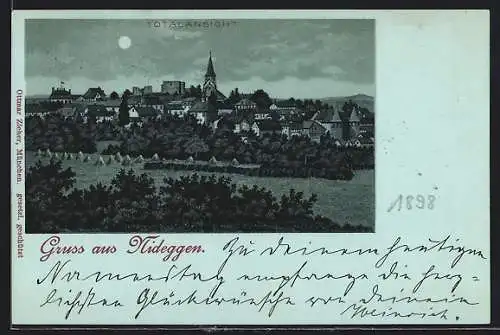 TOTALANSICHT
Ottmar Zieher, München. gesetzl. geschützt
1898
Gruss aus Nideggen. Zu Deinem heutigen
Namenstag empfange die herz-
lichsten Glückwünsche von Deinem
Heinrich.